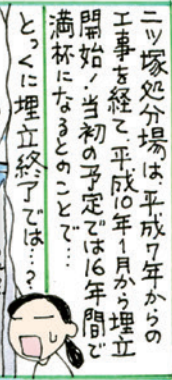 二ツ塚処分場は、平成7年からの
工事を経て、平成10年1月から埋立
開始！当初の予定では16年間で
満杯になるとのことで…
とっくに埋立終了では…？